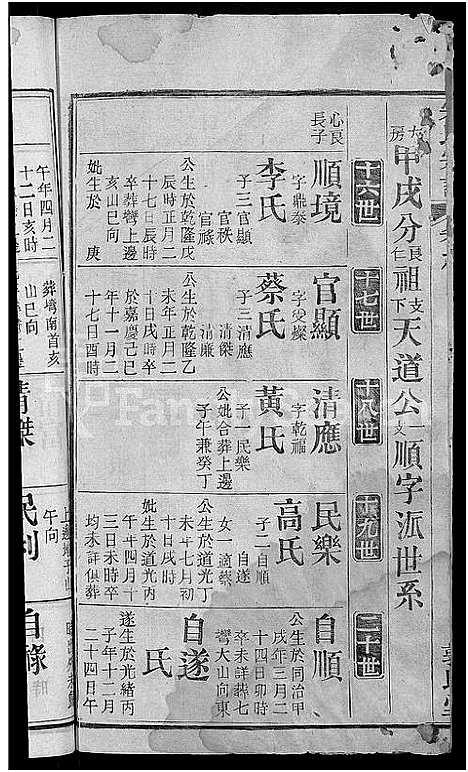 大房甲戌分良仁祖支下天道公一支順字派世系
十六世
心良長子
順境
字鼎泰
李氏
子三官顯
官秩
官祿
公生於乾隆戊
辰時正月二
十七日辰時
卒葬灣上邊
亥山巳向
妣生於 庚
午年四月二
十二日亥時
十七世
官顯
字安燦
蔡氏
子三清應
清傑
清廉
公生於乾隆乙
未年正月二
十日戌時卒
於嘉慶己巳
年十一月二
十七日酉時
葬塆南首亥
山巳向
十八世
清應
字乾福
黃氏
子一民樂
公妣合葬上邊
子午兼癸丁
清傑
十九世
民樂
高氏
子二自順
自遂
女一適蔡
公生於道光丁
未年七月初
十日戌時
妣生於道光丙
午年四月十
三日未時卒
均未詳俱葬
午向
二十世
自順
公生於同治甲
戌年三月二
十四日卯時
卒未詳葬七
灣大山向東
自遂
氏
遂生於光緒丙
子年十二月
二十四日午
自祿